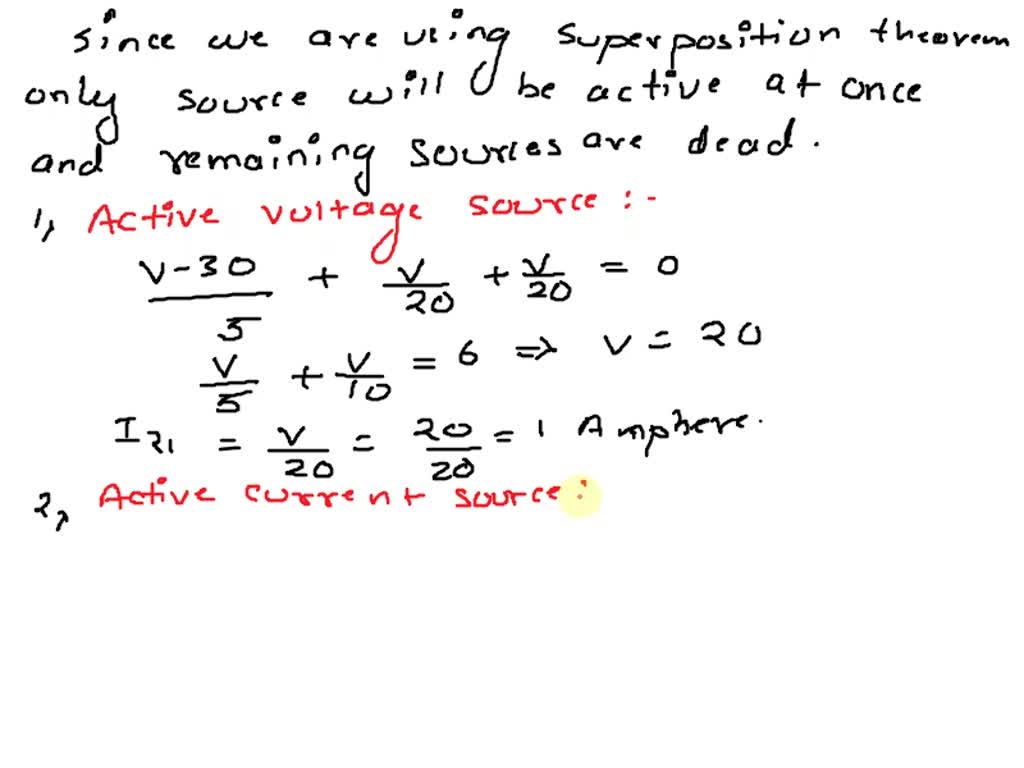 since we are using superposition theorem
only source will be active at once
and remaining sources are dead.
1, Active voltage source :-
V-30/5 + V/20 + V/20 = 0
V/5 + V/10 = 6 => V = 20
I21 = V/20 = 20/20 = 1 Amphere.
2, Active current source :